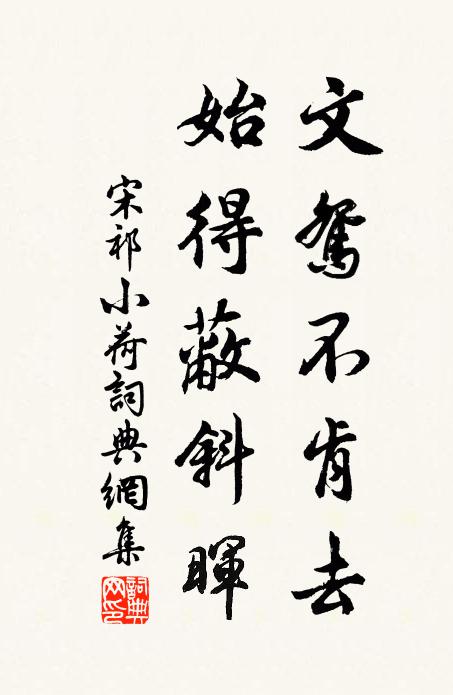 文鴛不肯去
始得蔽斜暉
宋祁小荷詞典網集
詞典网印